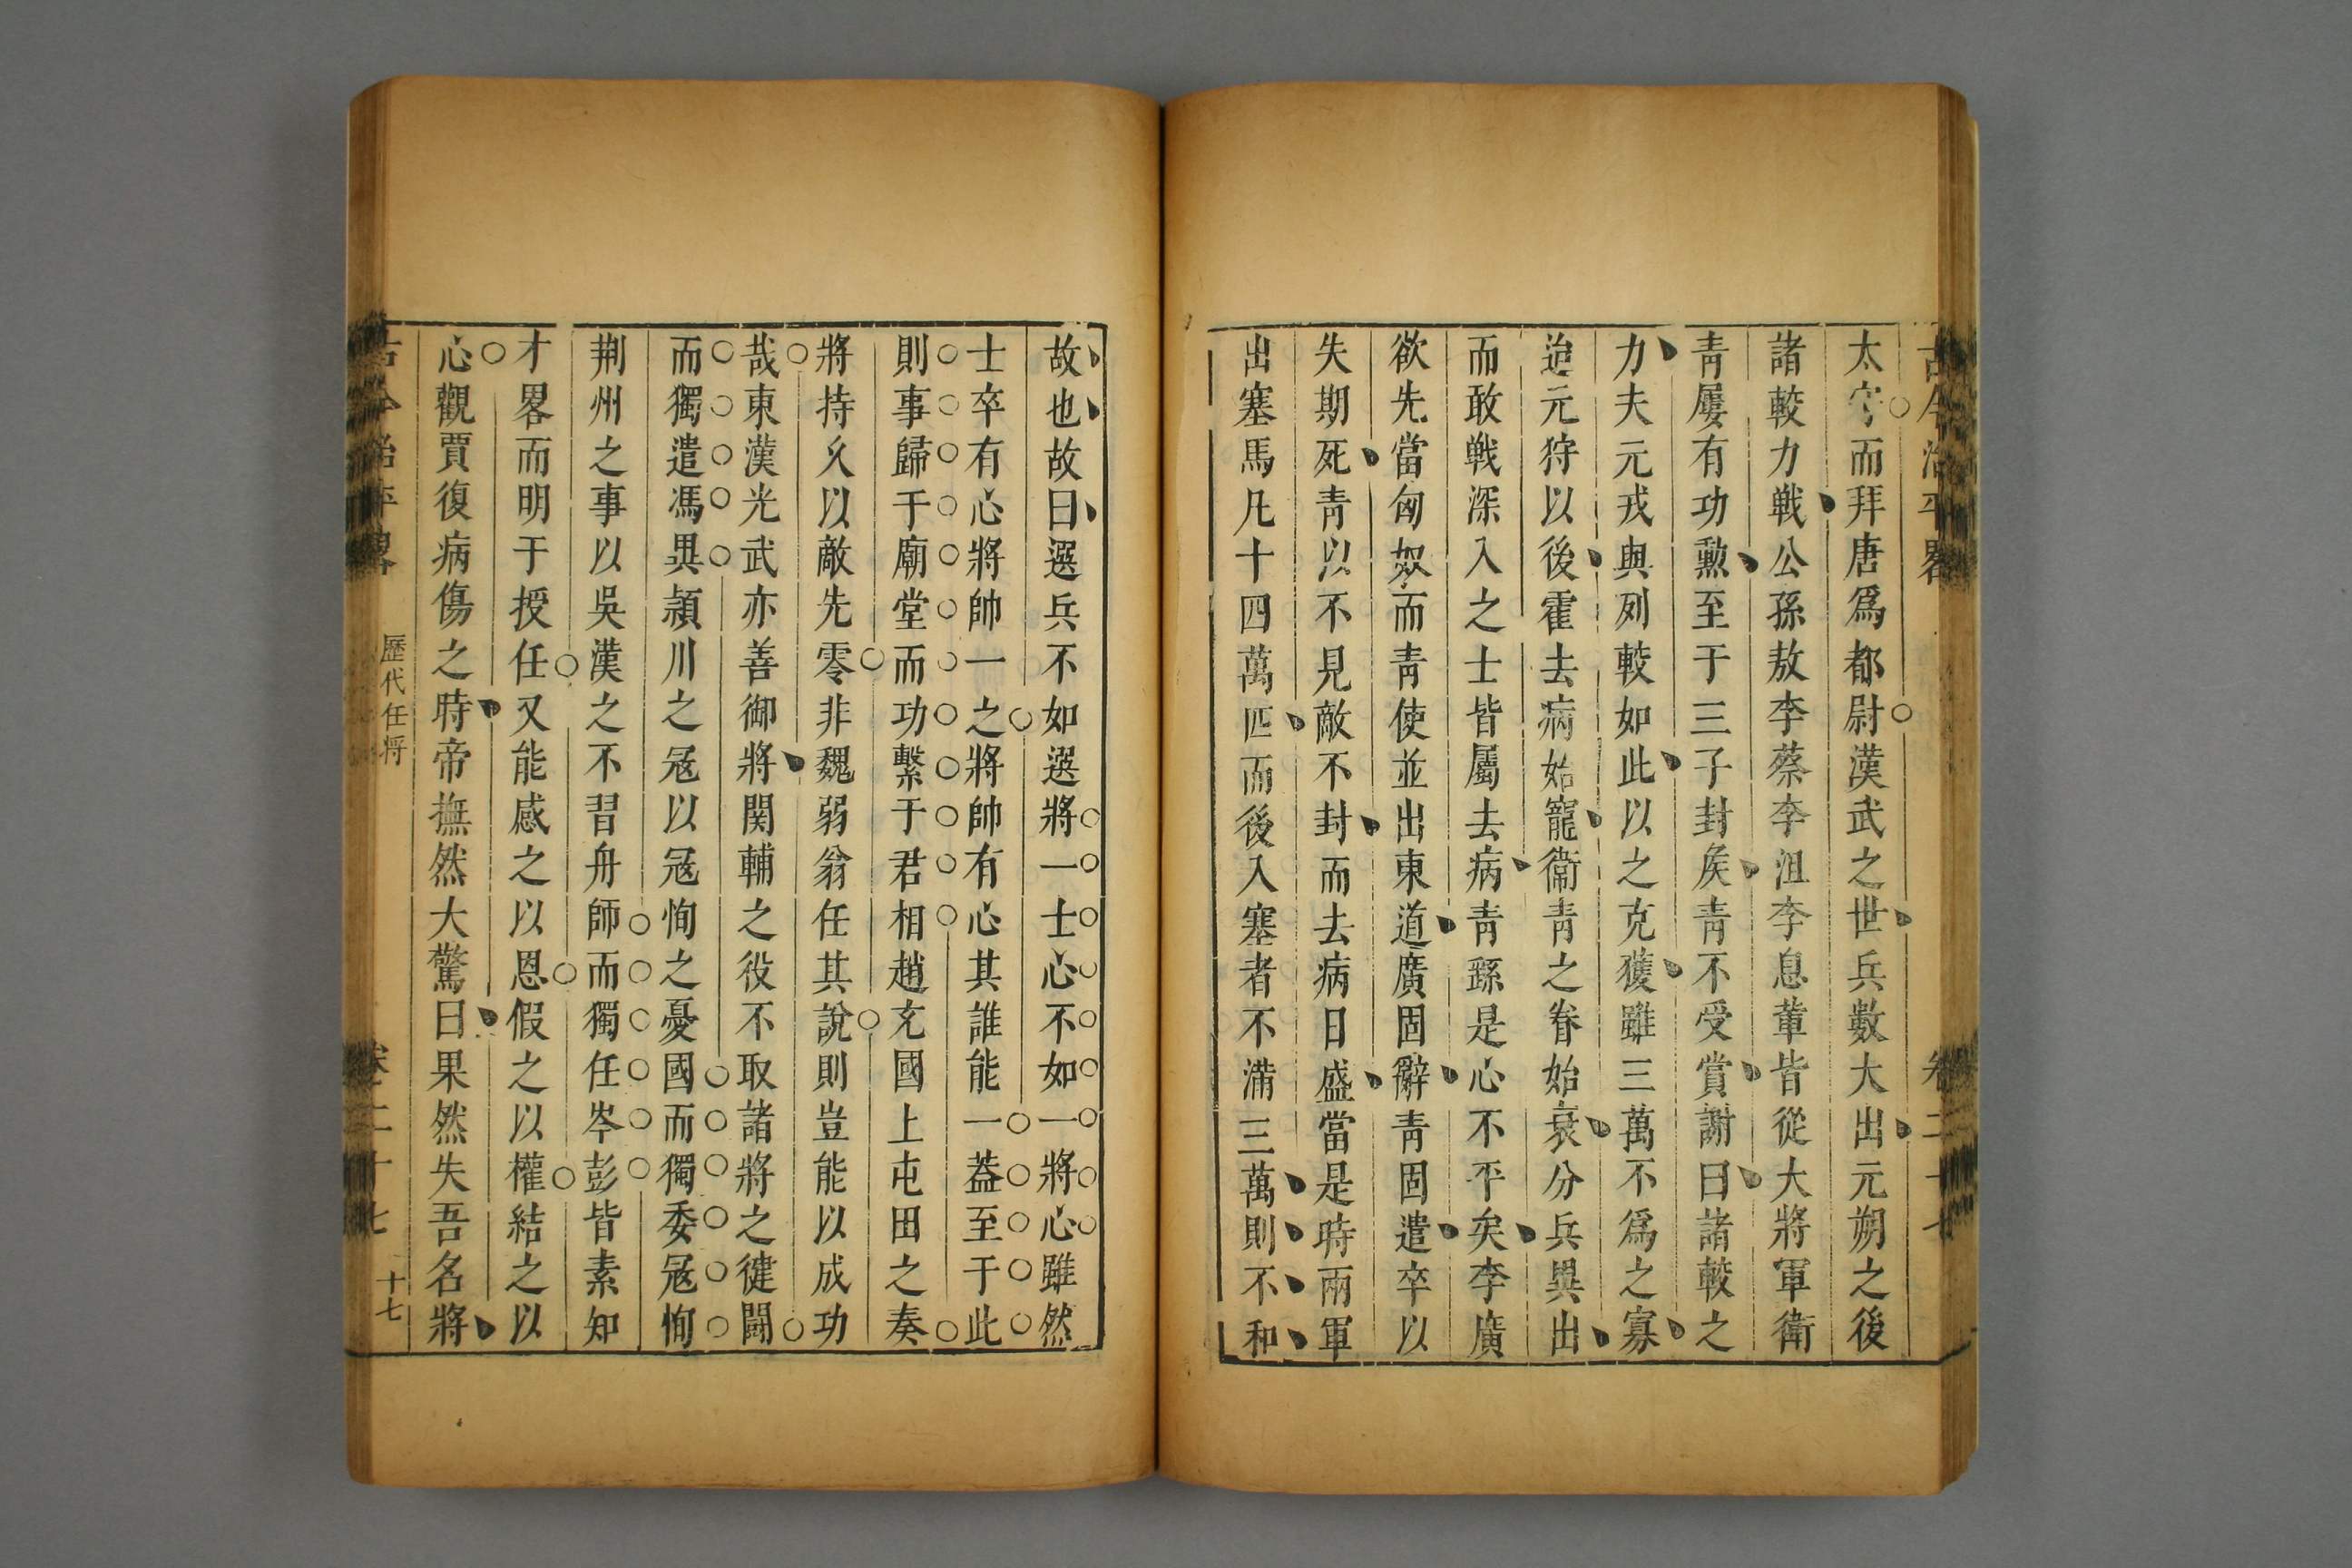 古今治平畧 卷二十七
太守而拜唐爲都尉漢武之世兵數大出元朔之後
諸較力戰公孫敖李蔡李沮李息輩皆從大將軍衛
靑屢有功勲至于三子封矦靑不受賞謝曰諸較之
力夫元戎與列較如此以之克獲雖三萬不爲之寡
迨元狩以後霍去病始寵衞靑之眷始衰分兵異出
而敢戰深入之士皆屬去病靑繇是心不平矣李廣
欲先當匈奴而靑使並出東道廣固辭靑固遣卒以
失期死靑以不見敵不封而去病日盛當是時兩軍
出塞馬凡十四萬匹而後入塞者不滿三萬則不和
故也故曰選兵不如選將一士心不如一將心雖然
士卒有心將帥一之將帥有心其誰能一葢至于此
則事歸于廟堂而功繫于君相趙充國上屯田之奏
將持久以敵先零非魏弱翁任其說則豈能以成功
哉東漢光武亦善御將関輔之役不取諸將之徤鬪
而獨遣馮異潁川之冦以冦恂之憂國而獨委冦恂
荆州之事以吳漢之不習舟師而獨任岑彭皆素知
才畧而明于授任又能感之以恩假之以權結之以
心觀賈復病傷之時帝撫然大驚曰果然失吾名將
古今治平畧 歷代任將 卷二十七 十七